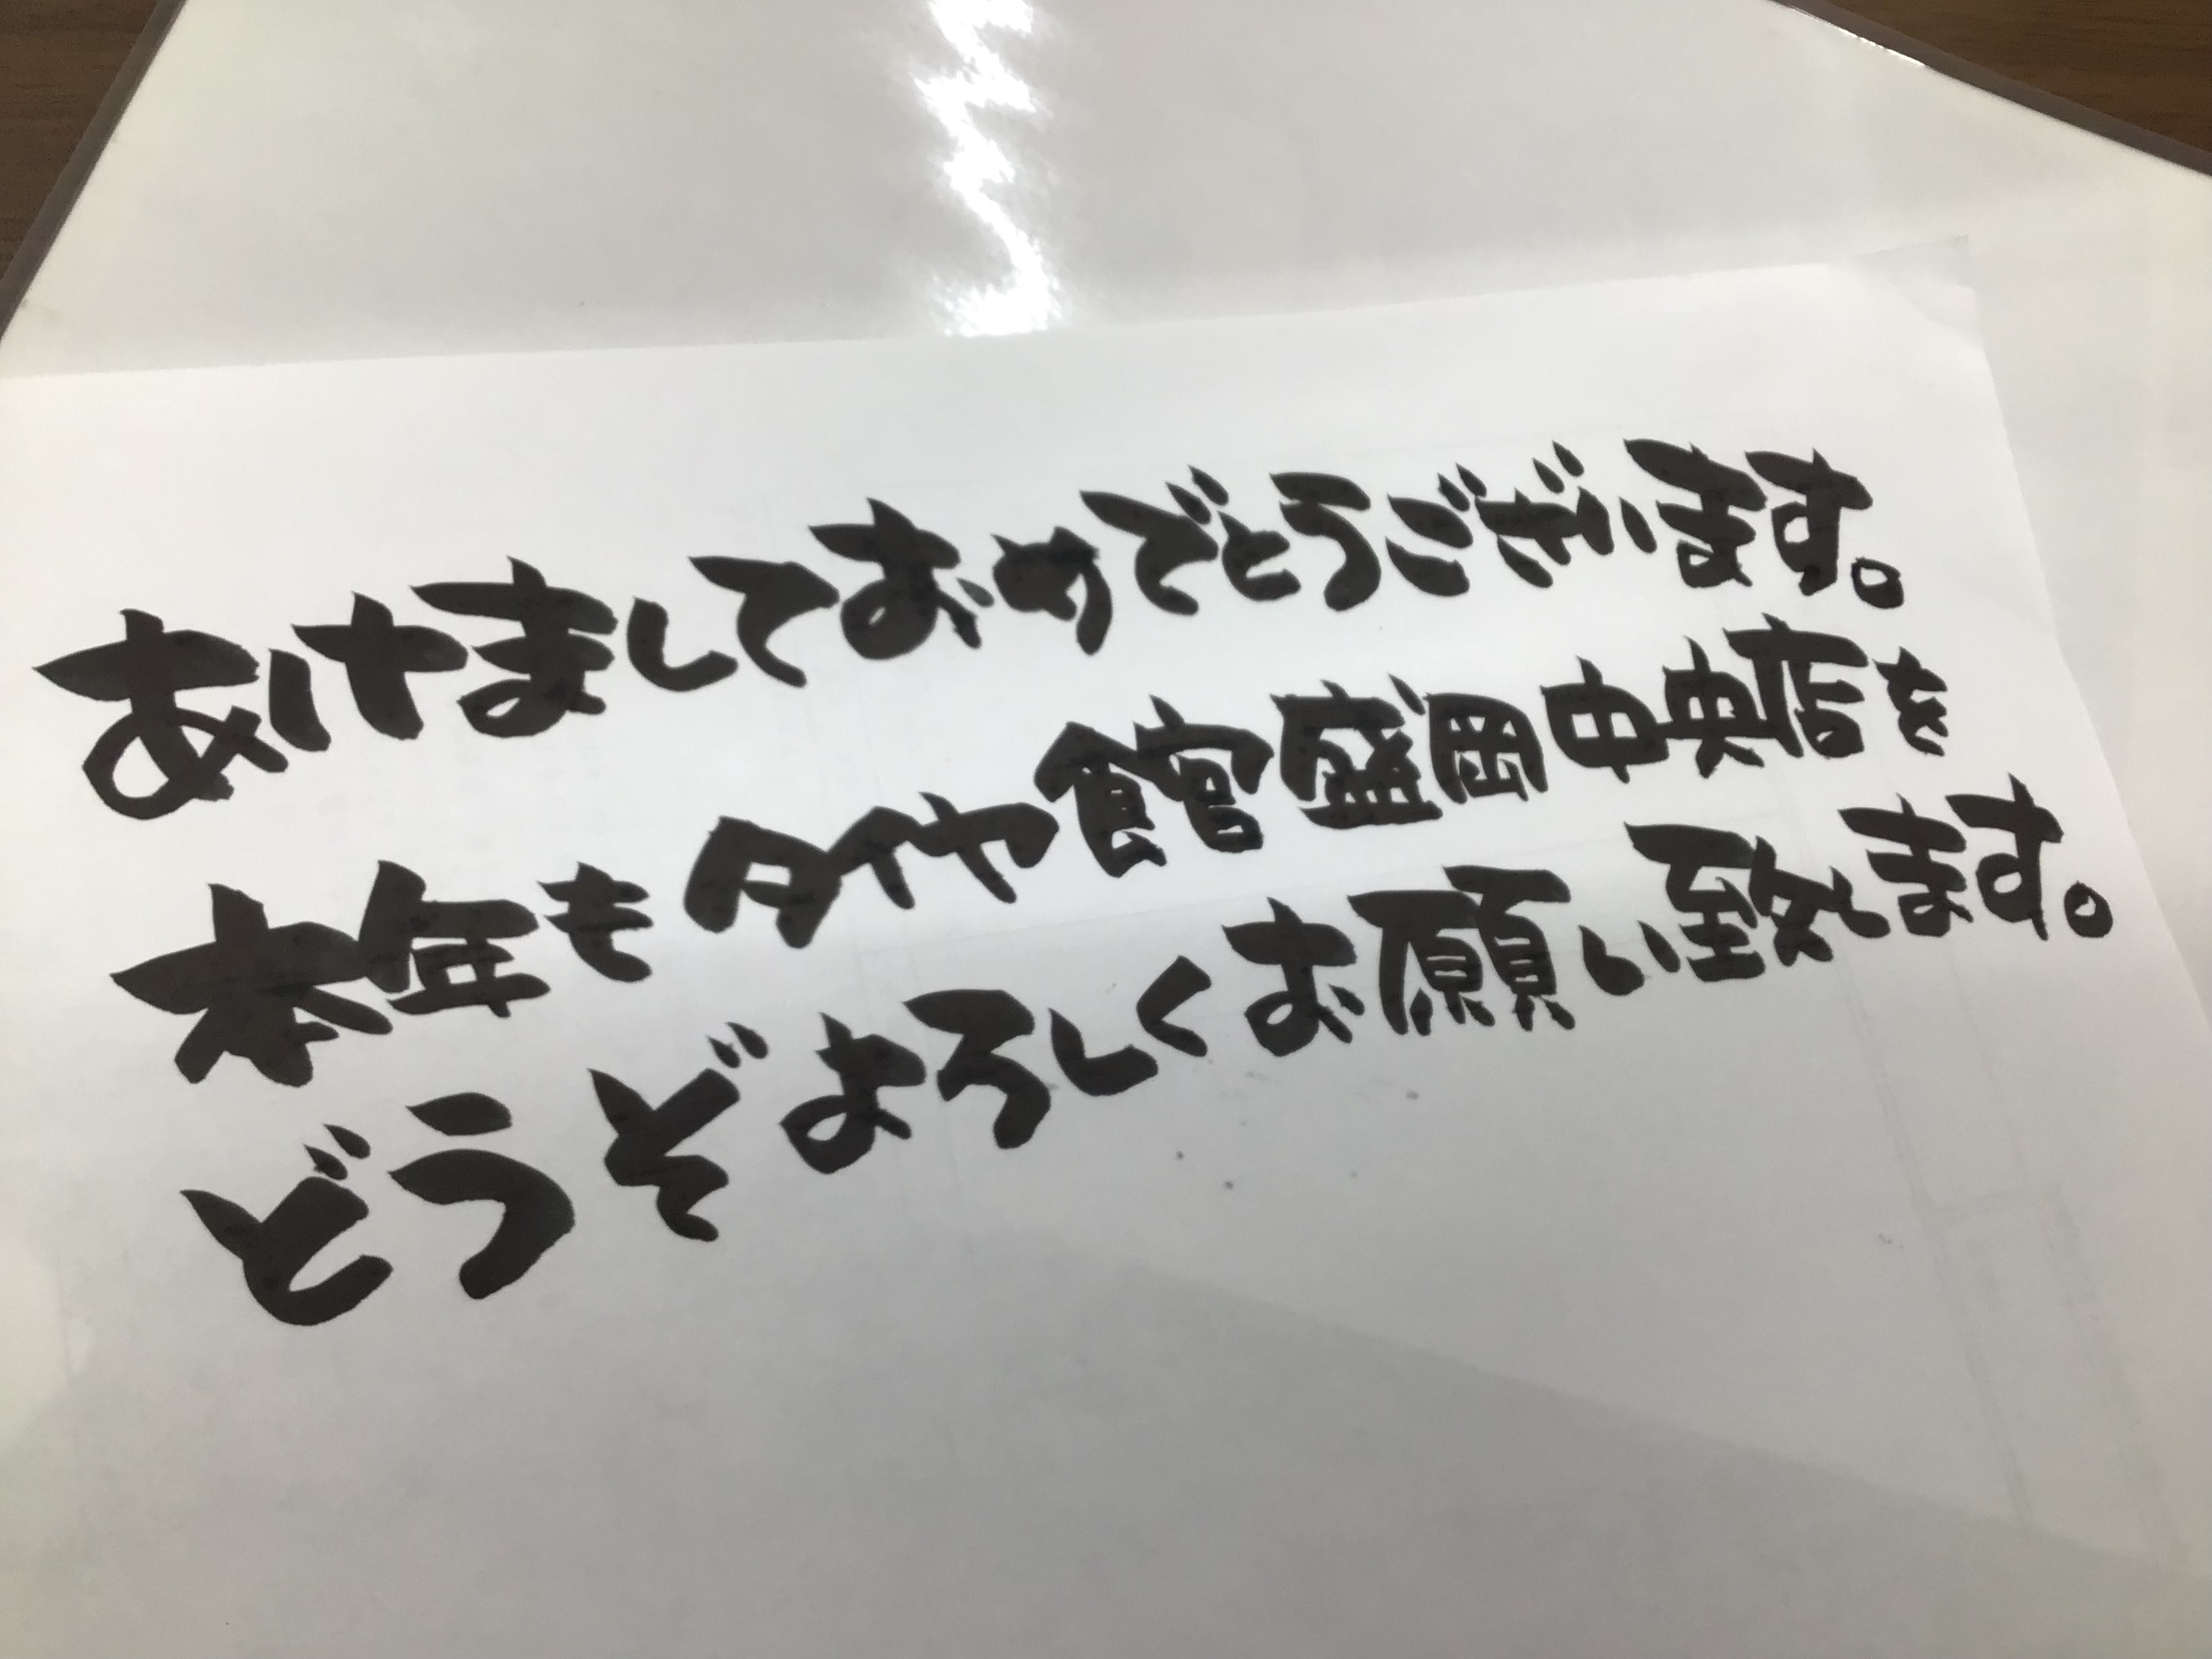 あけましておめでとうございます。
本年もタイヤ館盛岡中央店を
どうぞよろしくお願い致します。